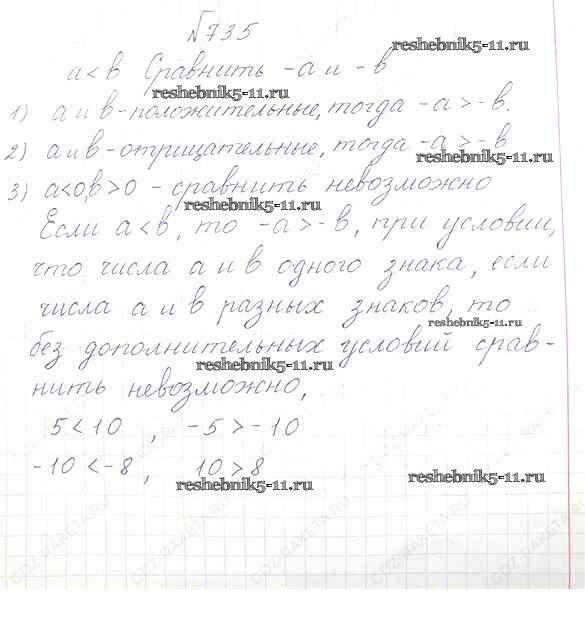 №735
reshebnik5-11.ru
a < b Сравнить -a и -b
reshebnik5-11.ru
1) a и b - положительные, тогда -a > -b.
2) a и b - отрицательные, тогда -a > -b
reshebnik5-11.ru
3) a<0, b>0 - сравнить невозможно
reshebnik5-11.ru
Если a < b, то -a > -b, при условии,
что числа a и b одного знака, если
числа a и b разных знаков, то
reshebnik5-11.ru
без дополнительных условий срав-
reshebnik5-11.ru
нить невозможно,
5 < 10 , -5 > -10
-10 < -8 , 10 > 8
reshebnik5-11.ru
reshebnik5-11.ru